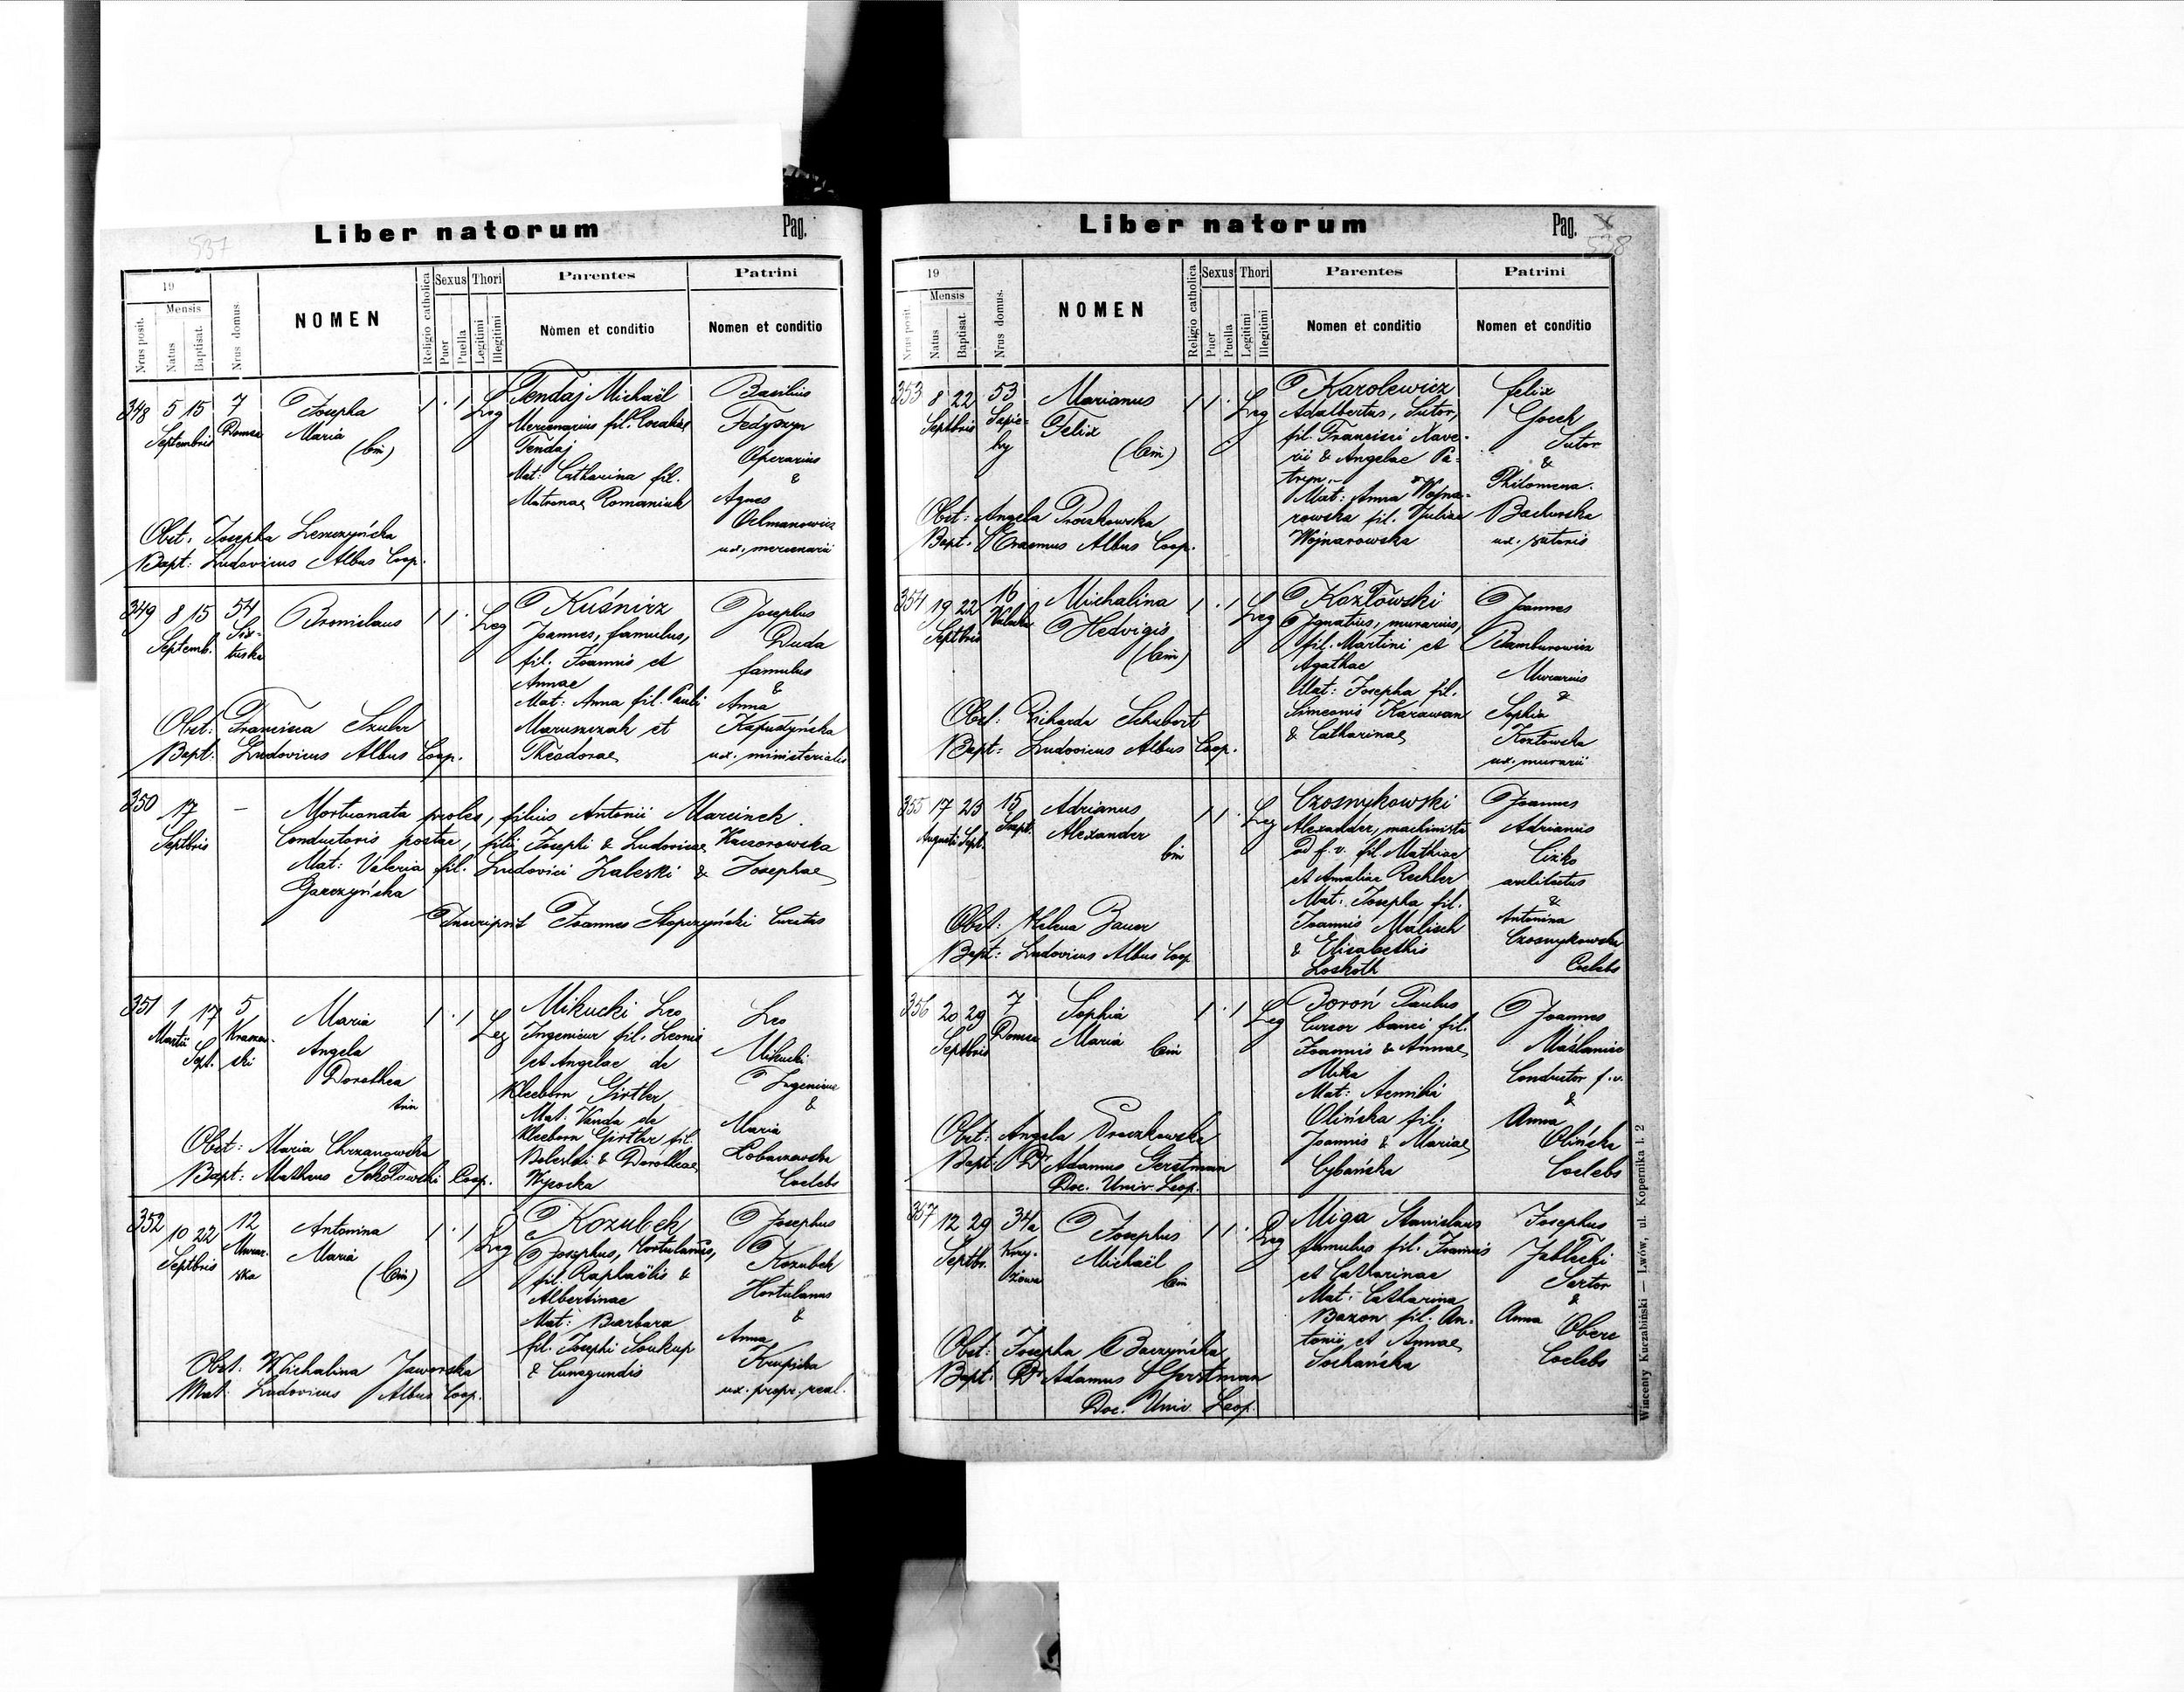 537
Liber natorum Pag.
19
Mensis
Nrus posit.
Natus
Baptisat.
Nrus domus.
NOMEN
Religio catholica
Sexus
Puer
Puella
Thori
Legitimi
Illegitimi
Parentes
Nomen et conditio
Patrini
Nomen et conditio
348 5 15 7
Septembris
Josepha
Maria
(bin)
Leg
Tendaj Michaël
Mercenarius fil.
Tendaj
Mat: Catharina fil.
Matronae Romaniuk
Basilius
Fedyszyn
Operarius
&
Agnes
ux. mercenarii
Obst. Josepha Leszczyńska
Bapt: Ludovicus Albus Coop.
349 8 15 54
Septemb. Six-
tuska
Bronislaus
Leg
Kuśnirz
Joannes, famulus,
fil. Joannis et
Annae
Mat: Anna fil. Pauli
Maruszczak et
Theodorae
Josephus
Duda
famulus
&
Anna
Kapustyńska
ux. ministerialis
Obst: Francisca Szuber
Bapt: Ludovicus Albus Coop.
350 17 —
Septbris
Mortuonata proles, filius Antonii Marcinek
Conductoris postae, filii Josephi & Ludovicae Kaczorowska
Mat: Valeria fil. Ludovici Zaleski & Josephae
Garczyńska
Inscripsit Joannes Stopczyński Curatus
351 1 17 5
Martii Kraszew-
Sept. ski
Maria
Angela
Dorothea
trin
Leg
Mikucki Leo
Ingenieur fil. Leonis
et Angelae de
Kleeborn Girtler
Mat: Vanda de
Kleeborn Girtler fil.
Boleslai & Dorotheae
Wysocka
Leo
Mikucki
Ingenieur
&
Maria
Lobaczewska
Coelebs
Obst: Maria Chrzanowska
Bapt: Matheus Sokołowski Coop.
352 10 22 12
Septbris Murar-
ska
Antonina
Maria
(bin)
Leg
Kozubek
Josephus, Hortulanus,
fil. Raphaëlis &
Albertinae
Mat: Barbara
fil. Josephi Soukup
& Cunegundis
Josephus
Kozubek
Hortulanus
&
Anna
Krupicka
ux. propr. real.
Obst: Michalina Jaworska
Mat: Ludovicus Albus Coop.
Liber natorum Pag.
538
19
Mensis
Nrus posit
Natus
Baptisat.
Nrus domus.
NOMEN
Religio catholica
Sexus
Puer
Puella
Thori
Legitimi
Illegitimi
Parentes
Nomen et conditio
Patrini
Nomen et conditio
353 8 22 53
Septbris Sapie-
hy
Marianus
Felix
(bin)
Leg
Karolewicz
Adalbertus, Sutor,
fil. Francisci Xave-
rii & Angelae Pa-
tryn
Mat: Anna Wojna-
rowska fil. Juliae
Wojnarowska
Felix
Sutor
&
Philomena
Bachurska
ux. sutoris
Obst: Angela Proczkowska
Bapt. Erasmus Albus Coop.
354 19 22 16
Septbris
Michalina
Hedvigis
(bin)
Leg
Kozłowski
Ignatius, murarius,
fil. Martini et
Agathae
Mat: Josepha fil.
Simeonis Karawan
& Catharinae
Joannes
Bamburowicz
Murarius
&
Sophia
Kozłowska
ux. murarii
Obst: Richarda Schubert
Bapt: Ludovicus Albus Coop.
355 17 23 15
Augusti Sept.
Adrianus
Alexander
bin
Leg
Czosnykowski
Alexander, machinista
ad f. v. fil. Mathiae
et Amaliae Rechler
Mat: Josepha fil.
Joannis Malisch
& Elisabethis
Loskoth
Joannes
Adrianus
architectus
&
Antonina
Czosnykowska
Coelebs
Obst: Helena Bauer
Bapt: Ludovicus Albus Coop
356 20 29 7
Septbris
Sophia
Maria
bin
Leg
Boroń Paulus
Cursor banci fil.
Joannis & Annae
Mika
Mat:
Olińska fil.
Joannis & Mariae
Cybańska
Joannes
Maślaniec
Conductor f. v.
&
Anna
Olińska
Coelebs
Obst: Angela Proczkowska
Bapt: Dr Adamus Gerstman
Doc. Univ. Leop.
357 12 29 34a
Septbr. Krzy-
żowa
Josephus
Michaël
bin
Leg
Miga Stanislaus
famulus fil. Joannis
et Catharinae
Mat: Catharina
Bazon fil. An-
tonii et Annae
Sochańska
Josephus
Sartor
&
Anna
Coelebs
Obst: Josepha Baczyńska
Bapt: Dr Adamus Gerstman
Doc. Univ. Leop.
Wincenty Kuczabiński — Lwów, ul. Kopernika l. 2